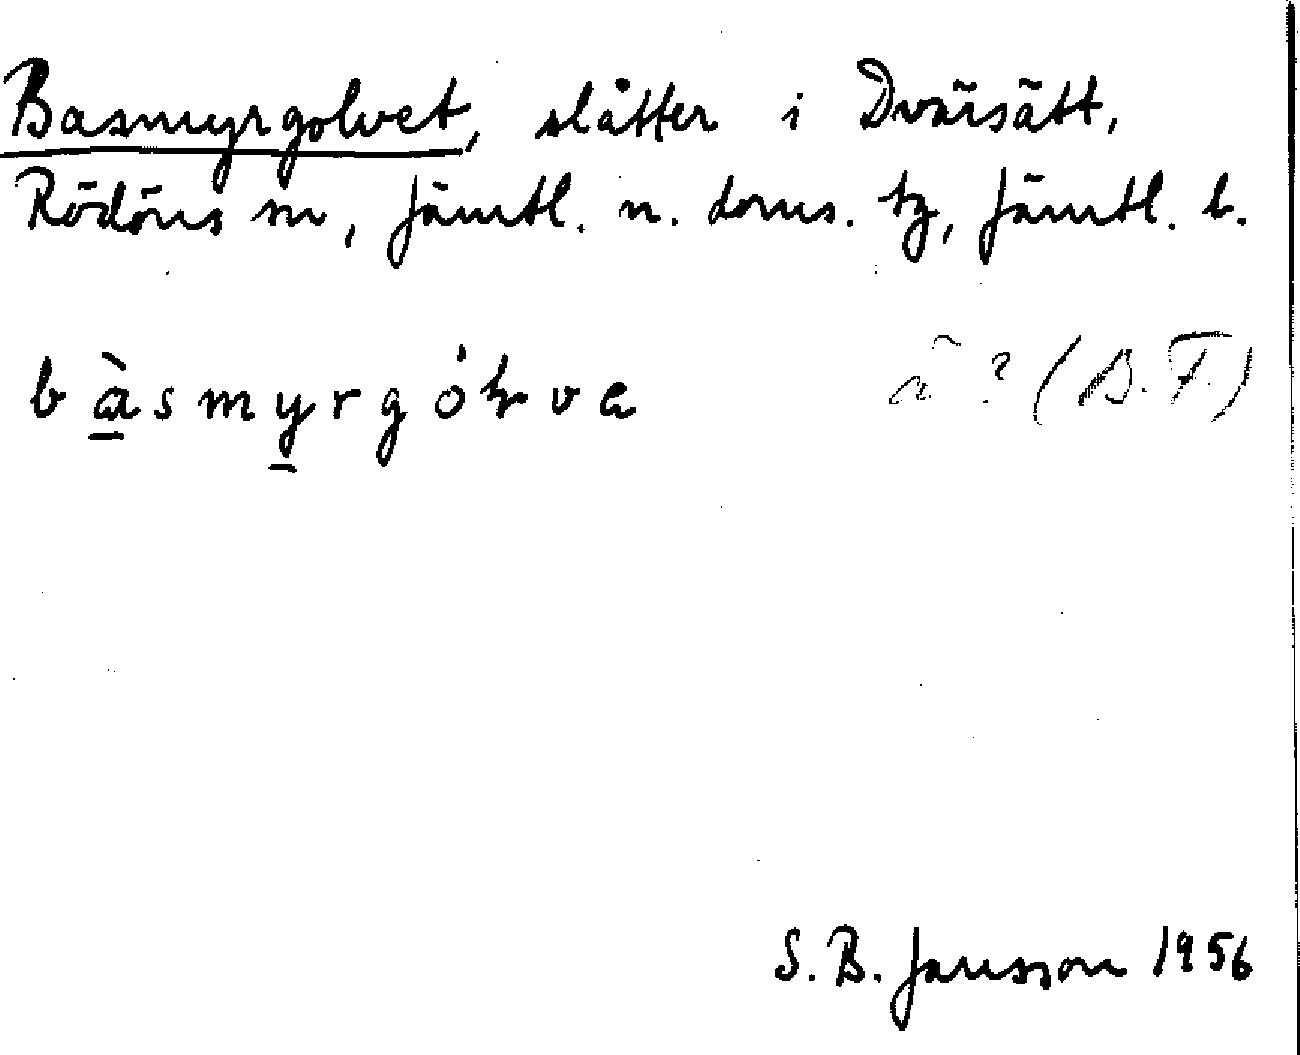 Basmyrgolvet, slåtter i Dvärsätt,
Rödöns sn, Jämtl. n. doms. tg, Jämtl. l.
bàsmyrgóɫva ã? (B.F.)
S. B. Jansson 1956